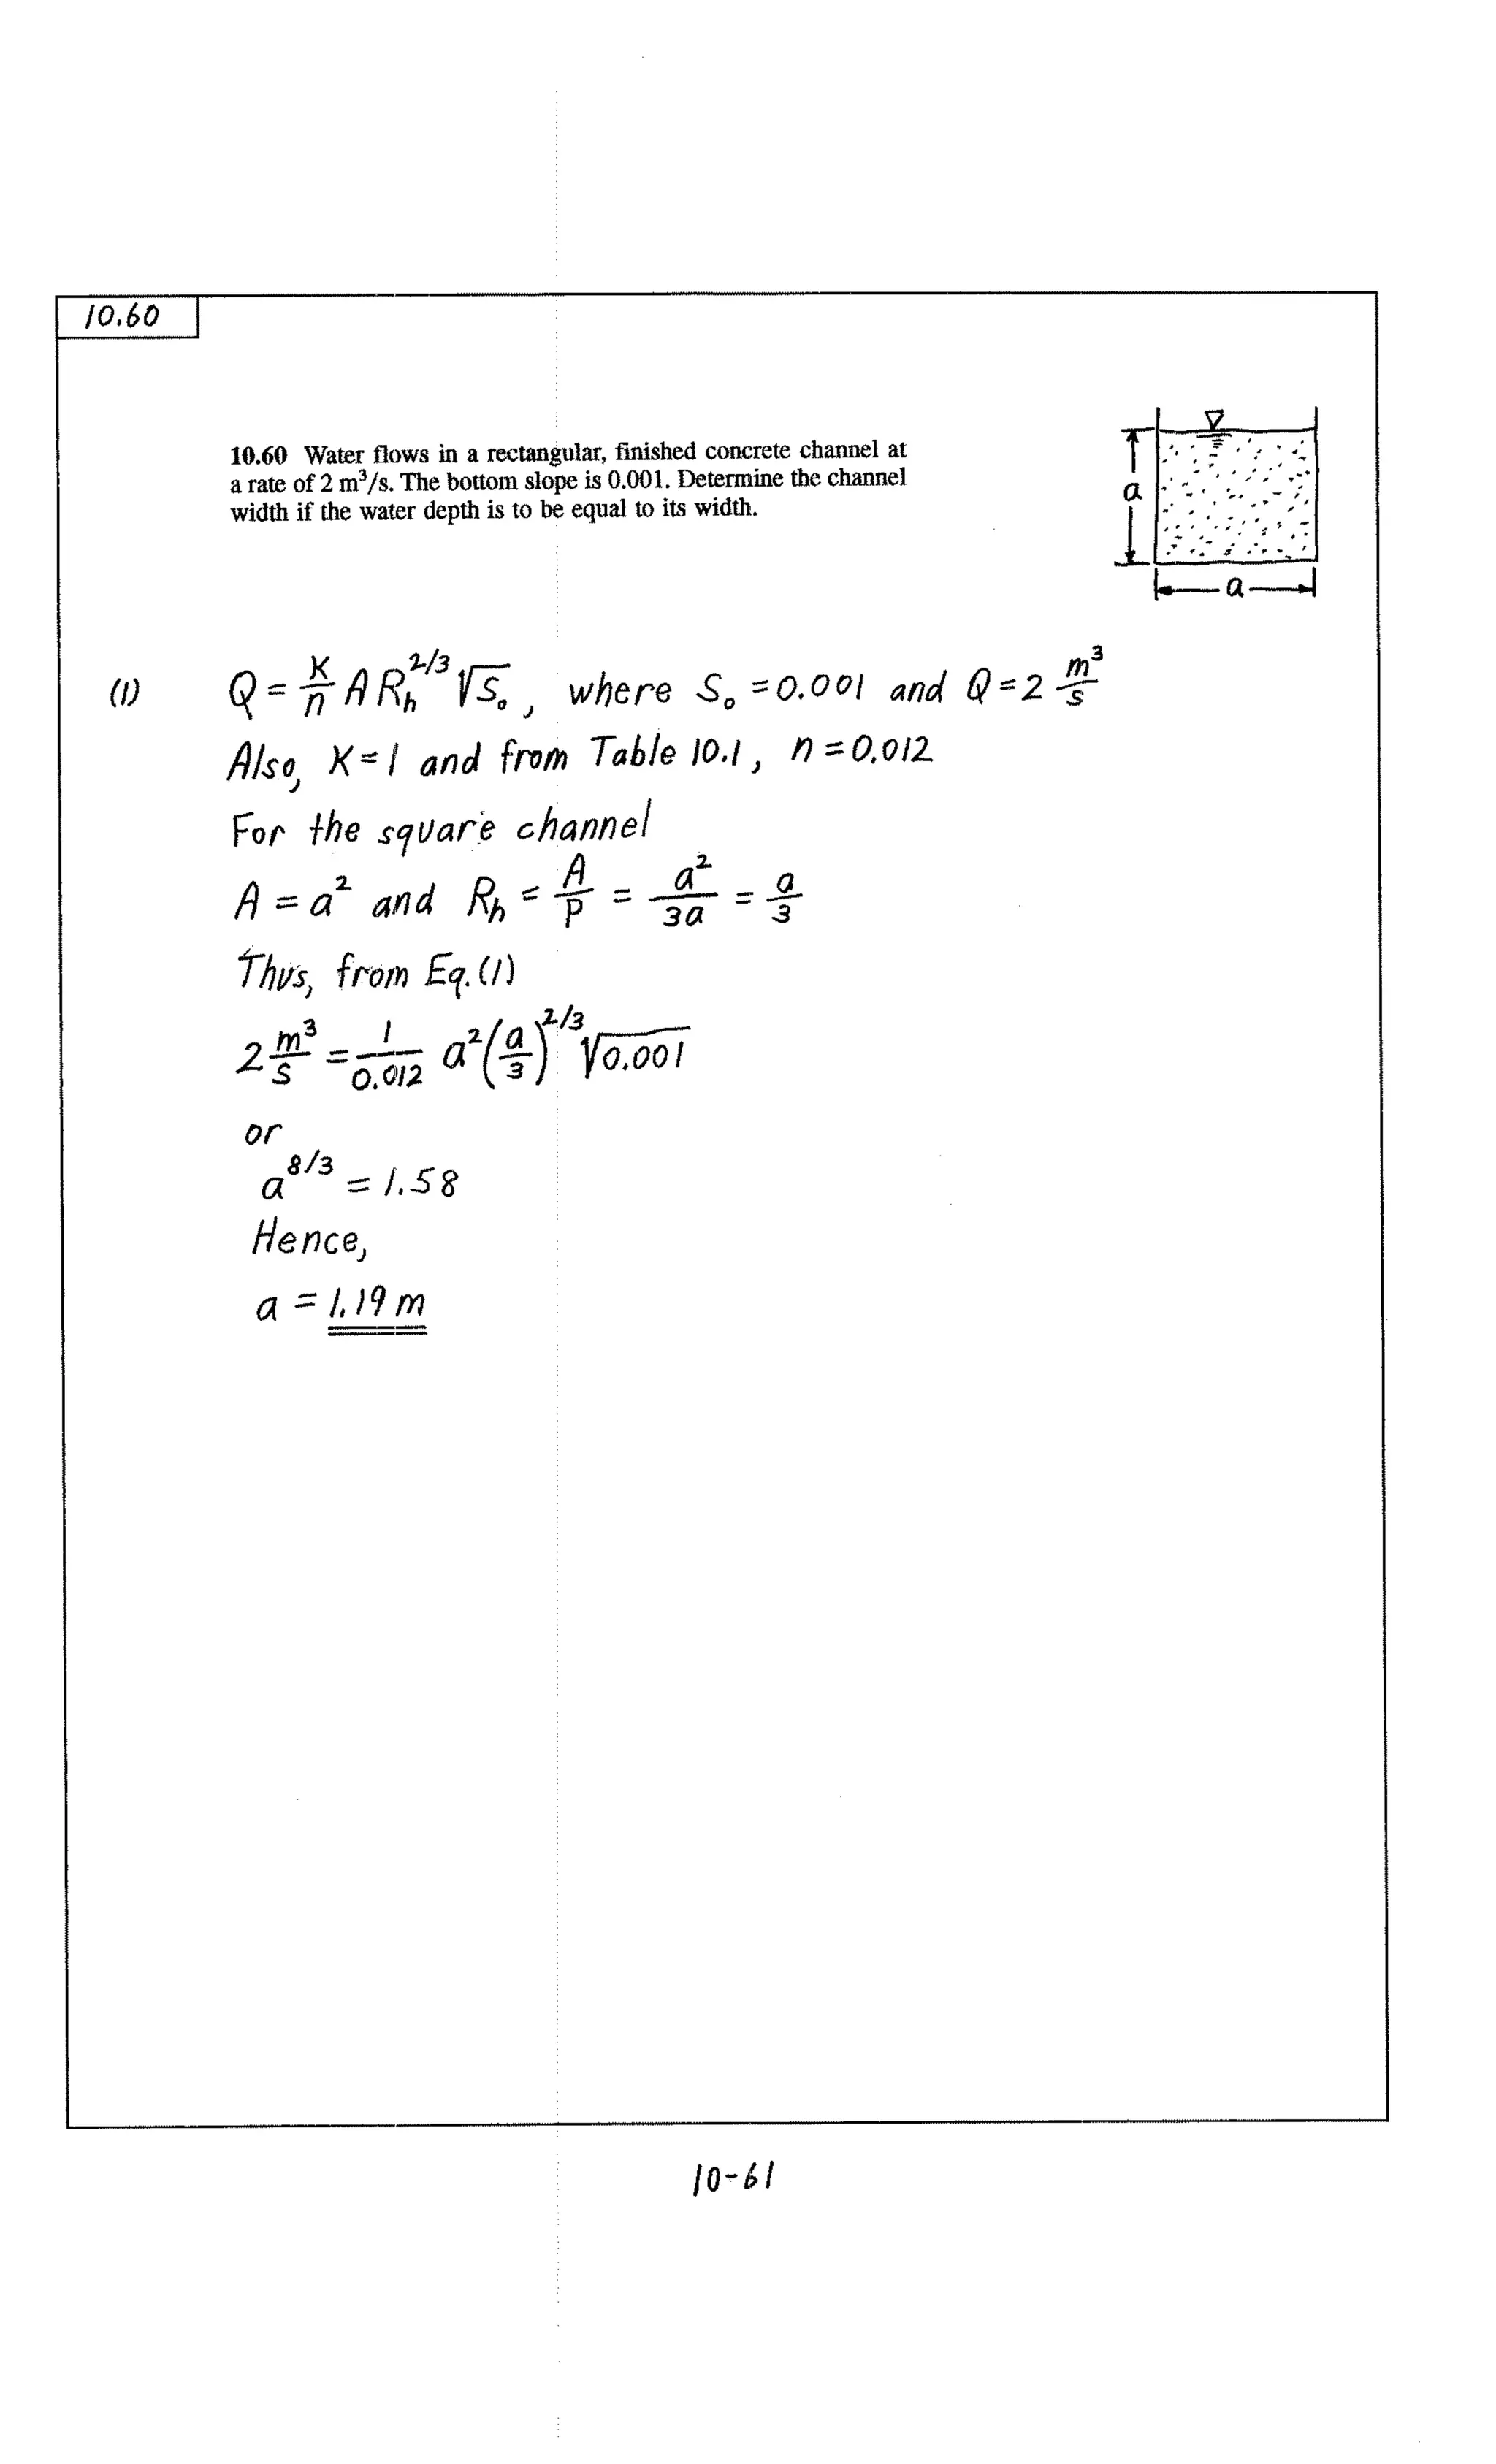 10.60
10.60 Water flows in a rectangular, finished concrete channel at
a rate of 2 m³/s. The bottom slope is 0.001. Determine the channel
width if the water depth is to be equal to its width.
a
a
(1) Q = K/n A R_h^2/3 √S₀, where S₀ = 0.001 and Q = 2 m³/s
Also, K = 1 and from Table 10.1, n = 0.012
For the square channel
A = a² and R_h = A/P = a²/3a = a/3
Thus, from Eq. (1)
2 m³/s = 1/0.012 a² (a/3)^2/3 √0.001
or
a^8/3 = 1.58
Hence,
a = 1.19 m
10-61